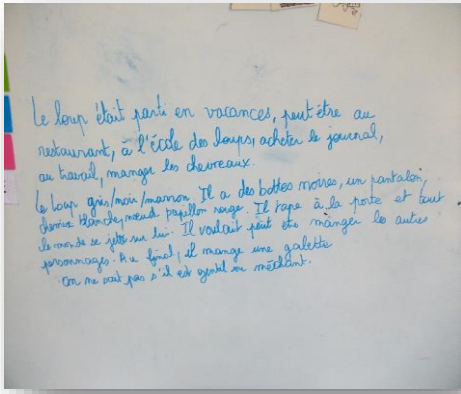 Le loup était parti en vacances, peut être au
restaurant, à l'école des loups, acheter le journal,
au travail, manger les chevreaux.
Le loup gris/noir/marron. Il a des bottes noires, un pantalon,
chemise blanche, nœud papillon rouge. Il tape à la porte et tout
le monde se jette sur lui. Il voulait peut être manger les autres
personnages. Au final, il mange une galette
On ne sait pas s'il est gentil ou méchant.